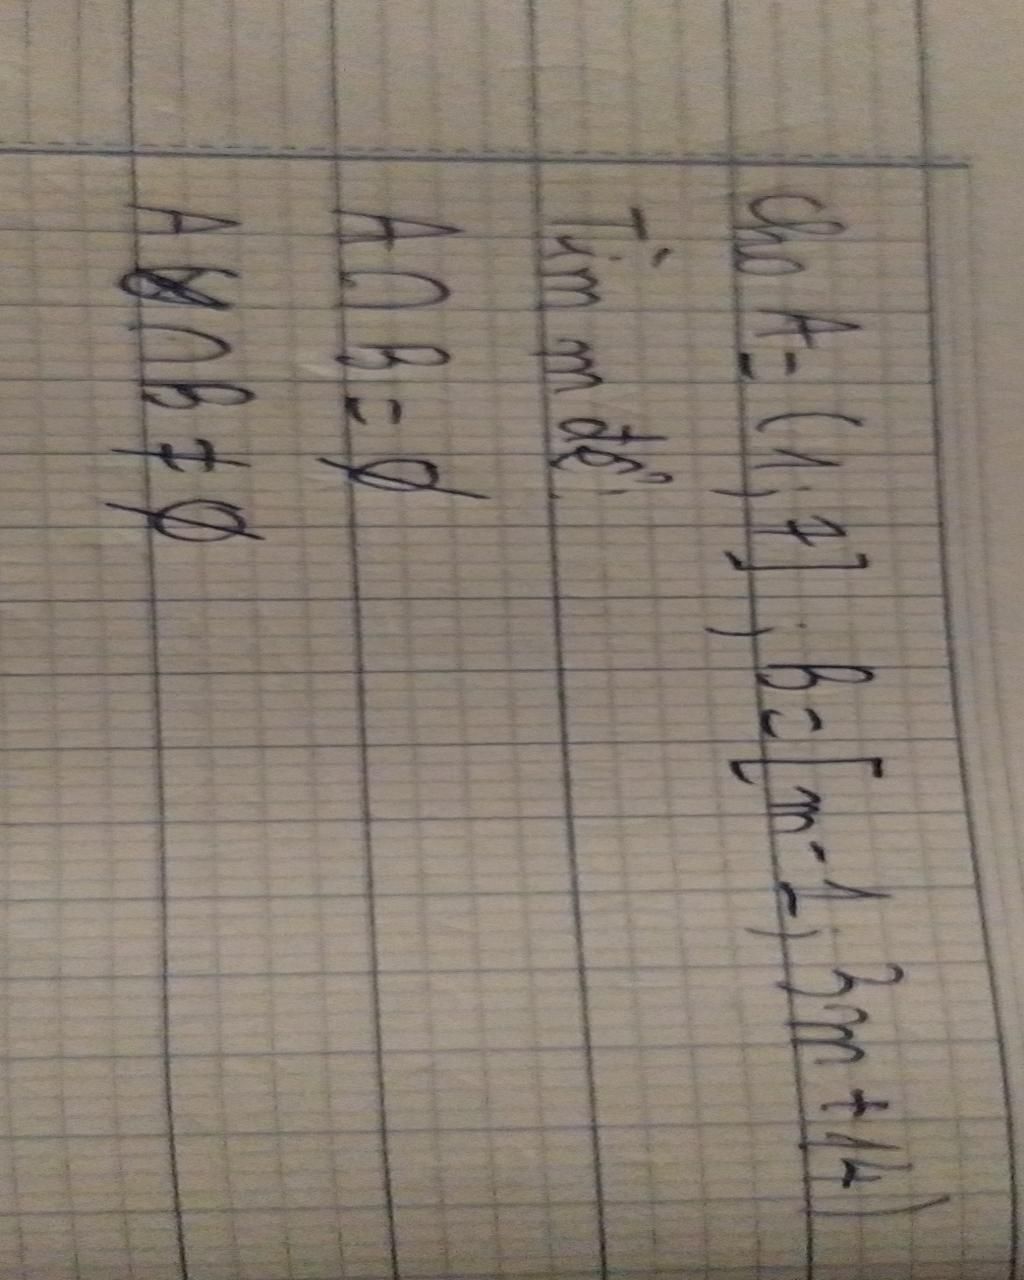 Cho A = (1; 7]; B = [m-1; 3m+14)
Tìm m để:
A ∩ B = ∅
A ∩ B ≠ ∅